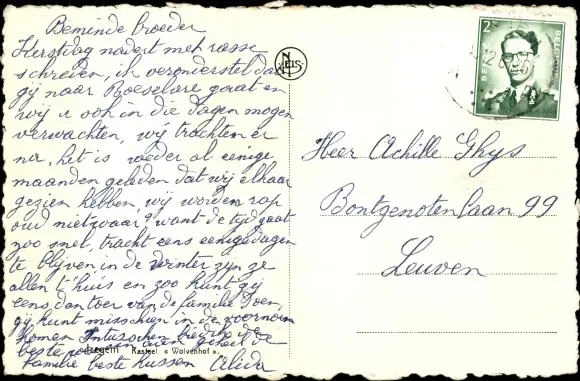 Beminde broeder
Kerstdag nadert met rasse
schreden, ik veronderstel dat
gij naar Roeselare gaat en
wij u ook in die dagen mogen
verwachten, wij trachten er
naar, het is weder al eenige
maanden geleden dat wij elkaar
gezien hebben, wij worden rap
oud nietwaar? want de tijd gaat
zoo snel, tracht eens eenige dagen
te blijven in de winter zijn ze
allen t'huis en zoo kunt gij
eens den toer van de familie doen,
gij kunt misschien in den voornoen
komen Intusschen
beste
familie beste kussen Alida
Izegem Kasteel « Wolvenhof ».
NELS
2F
BELGIE
Heer Achille Ghys
Bontgenotenlaan 99
Leuven